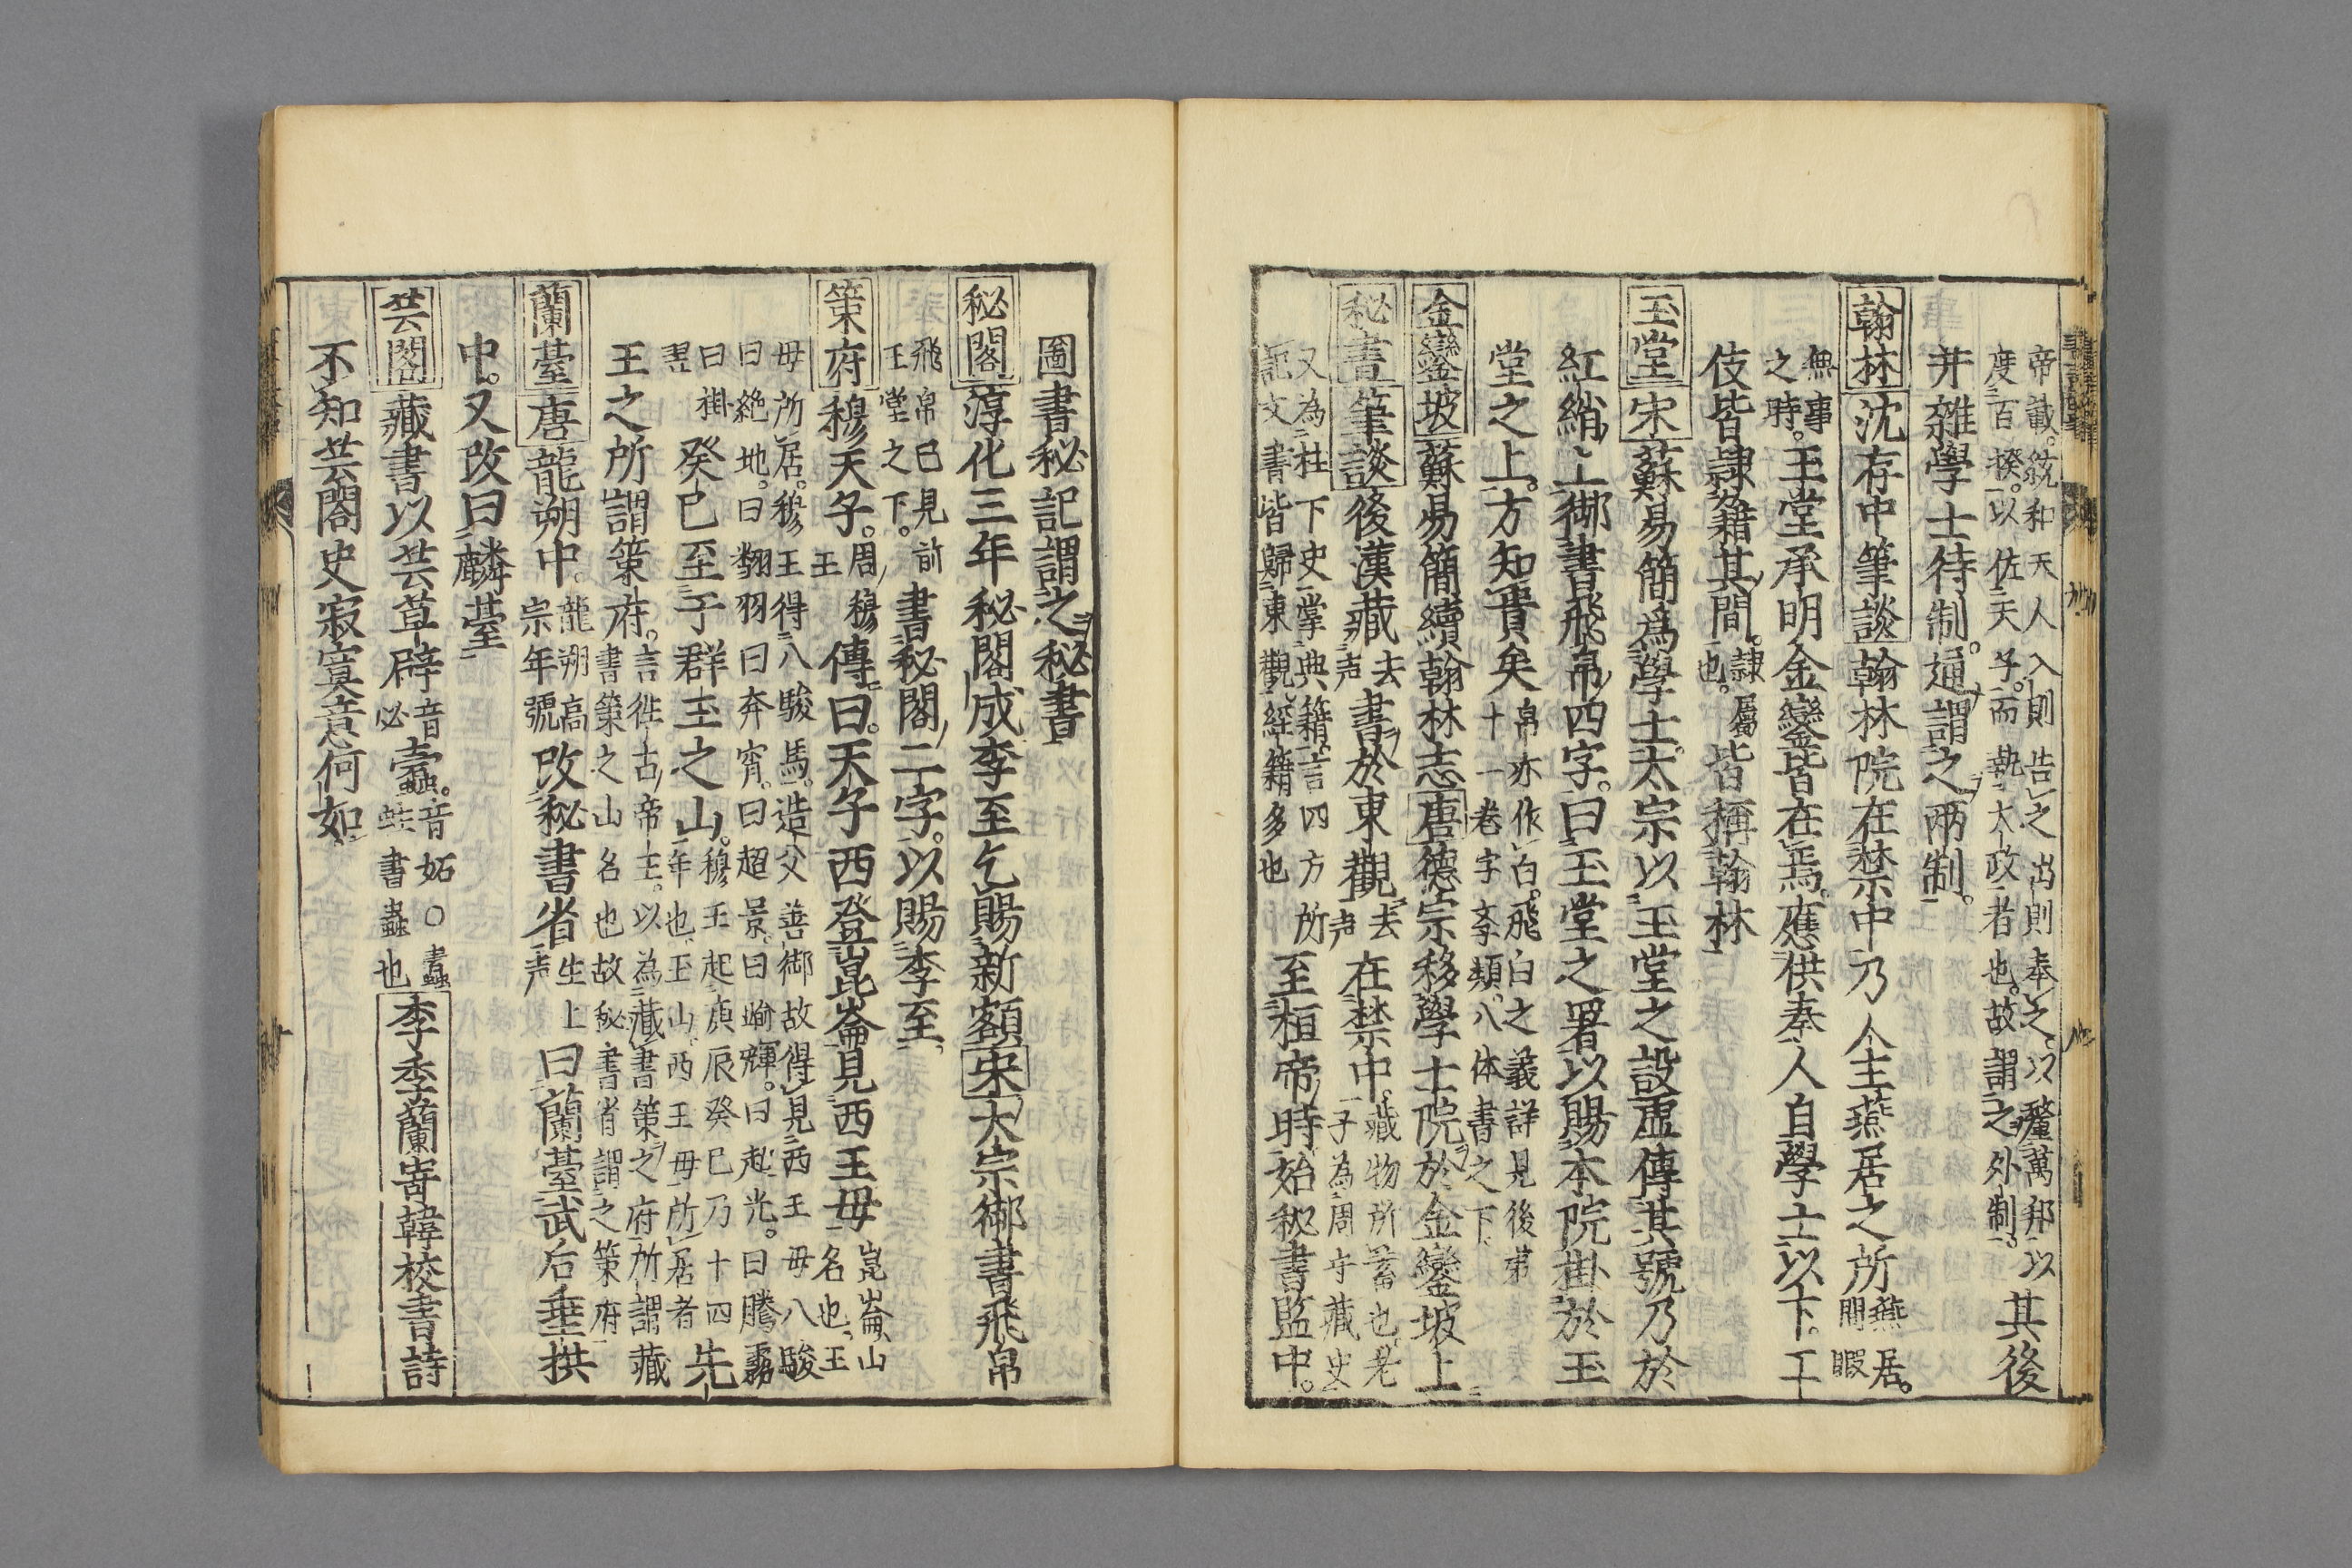 帝載。統和天人入則告之出則奉之。以釐萬邦以
度百揆。以佐天子。而執大政者也。故謂之外制。其後
并雜學士待制。通謂之兩制。
翰林沈存中筆談翰林院在禁中乃人主燕居之所燕居。間暇
無事之時。玉堂承明金鑾皆在焉。應供奉人自學士以下。工
伎皆隷籍其間。隷屬也。皆稱翰林
玉堂宋蘇易簡爲學士太宗以玉堂之設虛傳其號乃於
紅綃上御書飛帛四字。曰玉堂之署以賜本院掛於玉
堂之上。方知貴矣帛亦作白。飛白之義詳見後第十一卷字学類。八体書之下
金鑾坡蘇易簡續翰林志唐德宗移學士院於金鑾坡上
秘書筆談後漢藏去声書於東觀去声在禁中。藏物所蓄也。老子為周守藏史
又為柱下史掌典籍言四方所記文書皆歸東觀經籍多也至桓帝時始秘書監中。
圖書秘記謂之秘書
秘閣淳化三年秘閣成李至乞賜新額宋太宗御書飛帛
飛帛已見前玉堂之下。書秘閣二字。以賜李至
策府穆天子。周穆王傳曰。天子西登崑崙見西王毋崑崙山名也、王
毋所居。穆王得八駿馬。造父善御故得見西王毋八駿
曰絶地。曰翻羽曰奔宵。曰超景。曰踰輝。曰超光。曰騰霧
曰掛翌癸巳至于群玉之山。穆王起庚辰癸巳乃十四年也、玉山、西王毋所居者先
王之所謂策府。言徃古帝主。以為藏書策之府所謂藏書策之山名也故秘書省謂之策府
蘭䑓唐龍朔中。龍朔高宗年號改秘書省生上声曰蘭䑓武后垂拱
中。又改曰麟䑓
芸閣藏書以芸草辟音必蠧。音妬〇蠧蛀書蟲也李季蘭寄韓校書詩
不知芸閣吏寂寞意何如